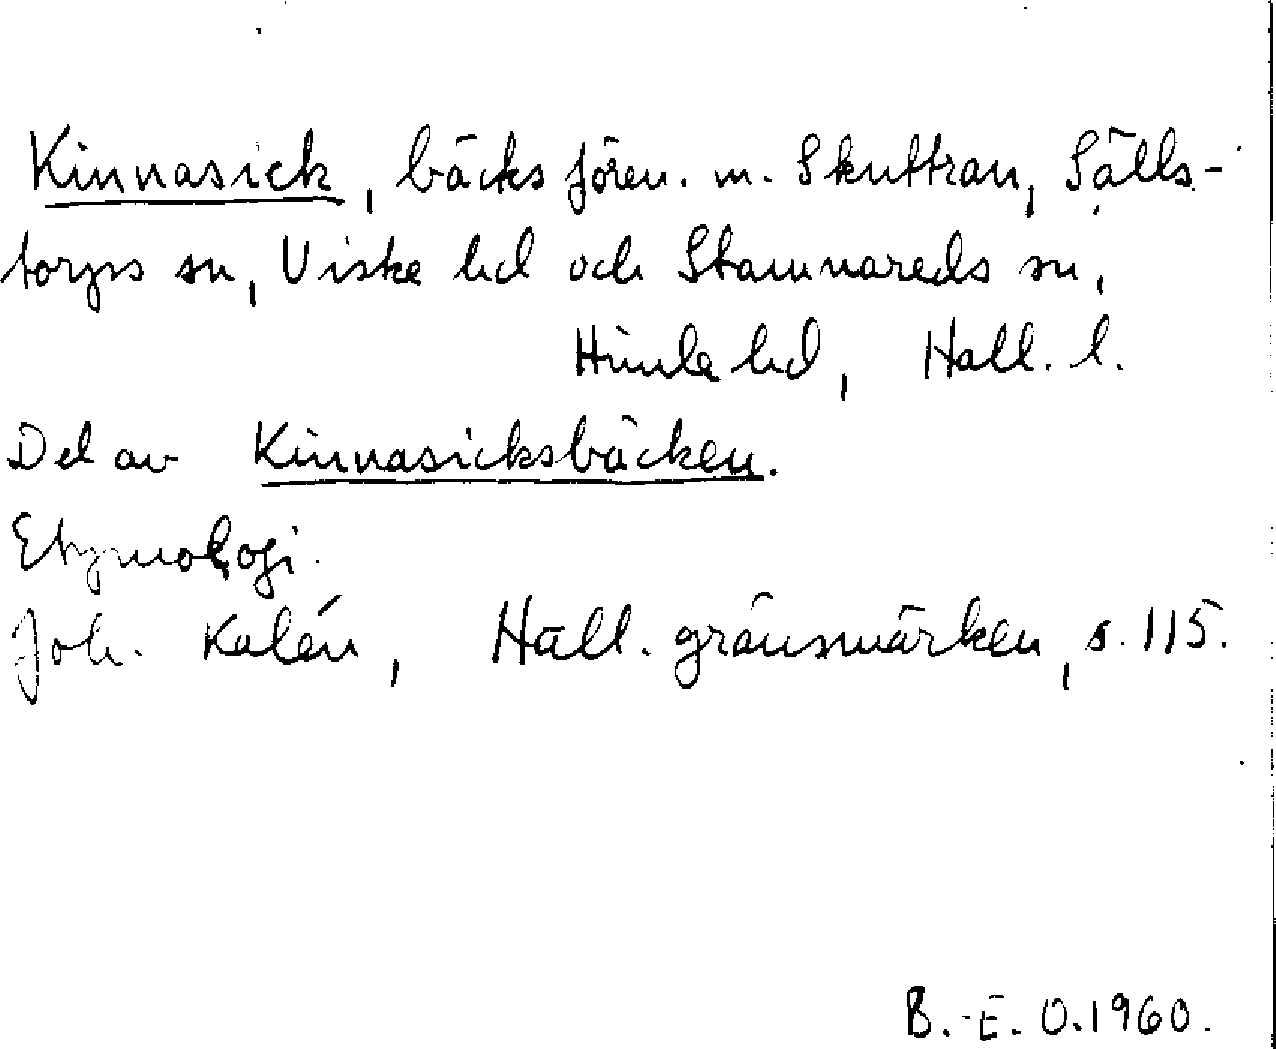 Kinnasick, bäcks fören. m. Skuttran, Sälls-
torps sn, Viske hd och Stamnareds sn,
Himle hd, Hall. l.
Del av Kinnasicksbäcken.
Etymologi.
Joh. Kalén, Hall. gränsmärken, s. 115.
B.-E. O. 1960.